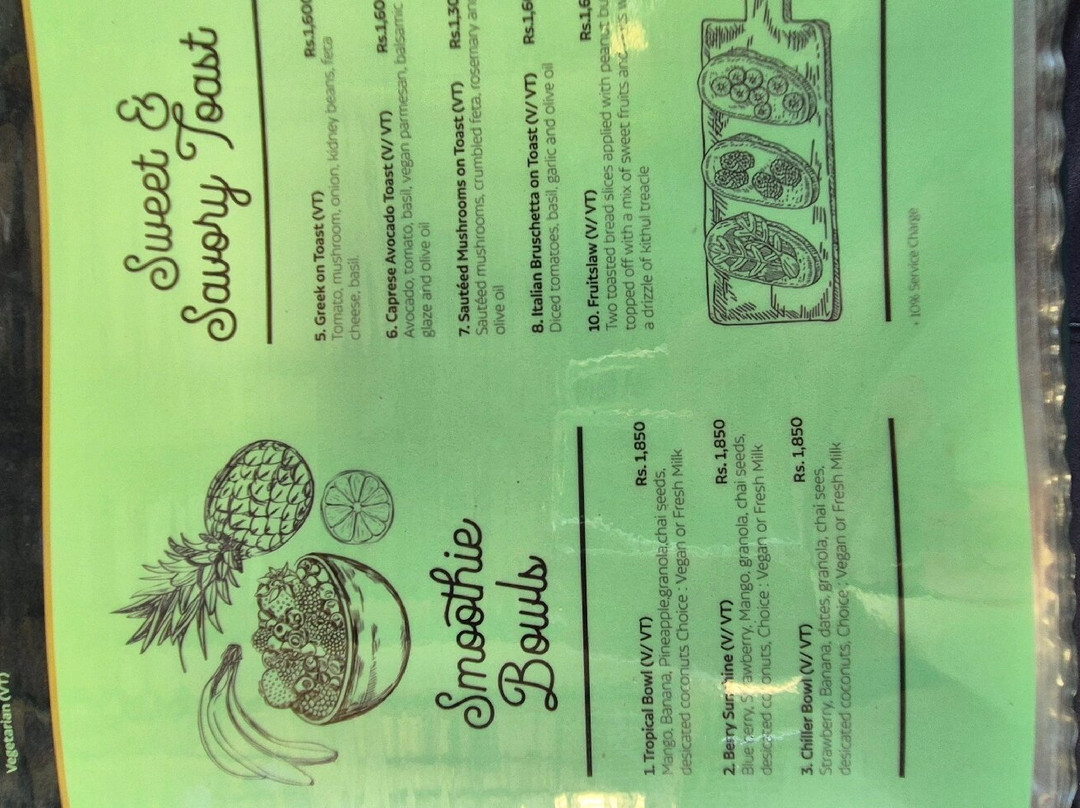 Vegetarian (VT)
Smoothie
Bowls
1. Tropical Bowl (V/ VT) Rs. 1,850
Mango, Banana, Pineapple,granola,chai seeds,
desicated coronuts Choice : Vegan or Fresh Milk
2. Berry Sunshine (V/ VT) Rs. 1,850
Blue berry, Strawberry, Mango, granola, chai seeds,
desicated coconuts, Choice : Vegan or Fresh Milk
3. Chiller Bowl (V/ VT) Rs. 1,850
Strawberry, Banana, dates, granola, chai sees,
desicated coconuts, Choice : Vegan or Fresh Milk
Sweet &
Savory Toast
5. Greek on Toast (VT) Rs.1,600
Tomato, mushroom, onion, kidney beans, feta
cheese, basil.
6. Caprese Avocado Toast (V/ VT) Rs.1,60
Avocado, tomato, basil, vegan parmesan, balsamic
glaze and olive oil
7. Sautéed Mushrooms on Toast (VT) Rs.1,30
Sautéed mushrooms, crumbled feta, rosemary and
olive oil
8. Italian Bruschetta on Toast (V/ VT) Rs.1,6
Diced tomatoes, basil, garlic and olive oil
10. Fruitslaw (V/ VT) Rs.1,6
Two toasted bread slices applied with peanut bu
topped off with a mix of sweet fruits and
a drizzle of kithul treacle
• 10% Service Charge